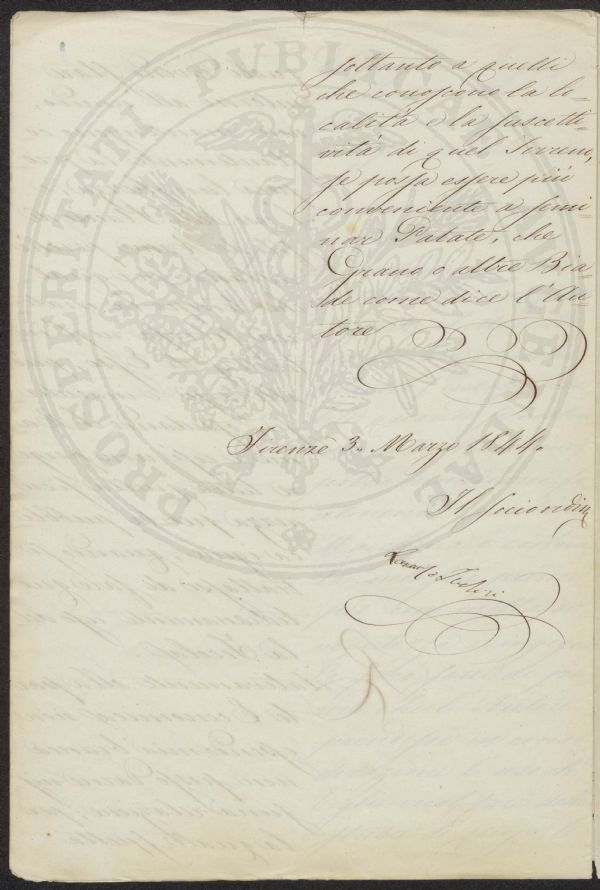 soltanto a quelli
che conoscono la lo=
calità e la suscetti=
vità di quel Terreno,
se possa essere più
conveniente a semi=
nar Patate, che
Grano o altre Bia=
de come dice l'Au=
tore
Firenze 3. Marzo 1844.
Il Socio ordin
PROSPERITATI PUBLICAE AUGENDAE